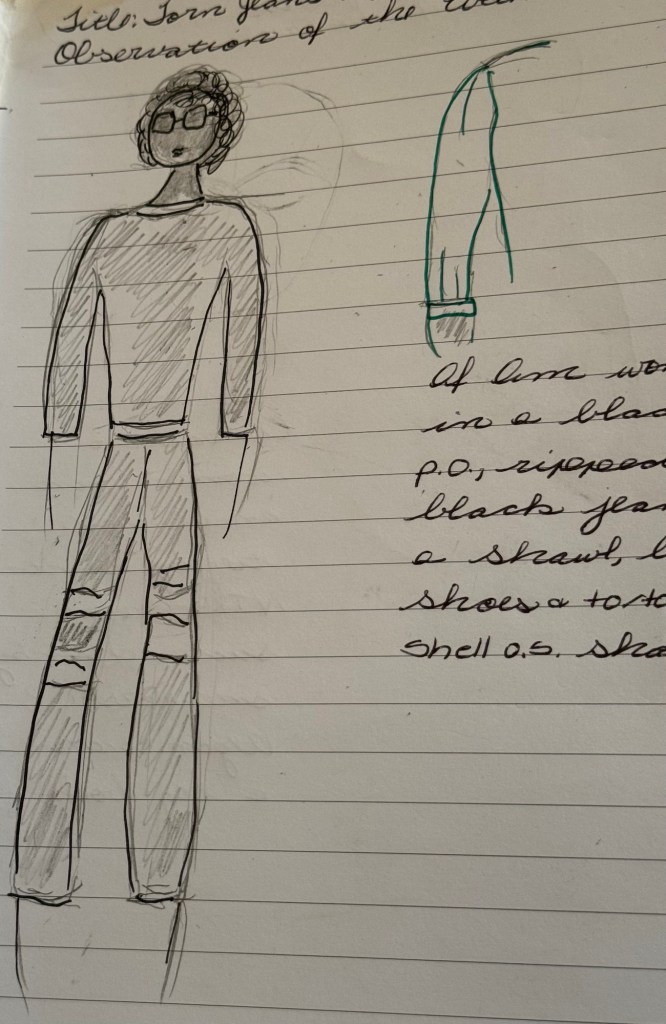 Title: Torn Jeans
Observation of the
Af Am wo
in a blac
p.o., ripped
black jea
a shawl, b
shoes & torto
Shell o.s. sha